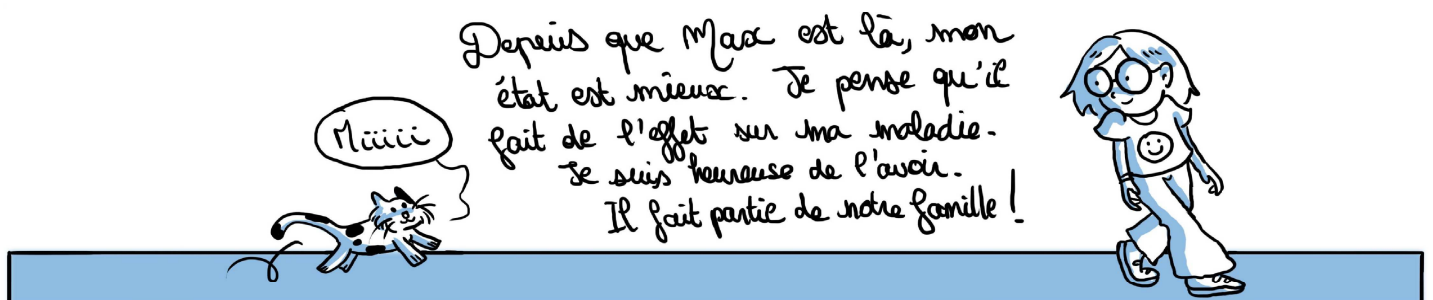 Depuis que Max est là, mon
état est mieux. Je pense qu'il
fait de l'effet sur ma maladie.
Je suis heureuse de l'avoir.
Il fait partie de notre famille !
Miiiii